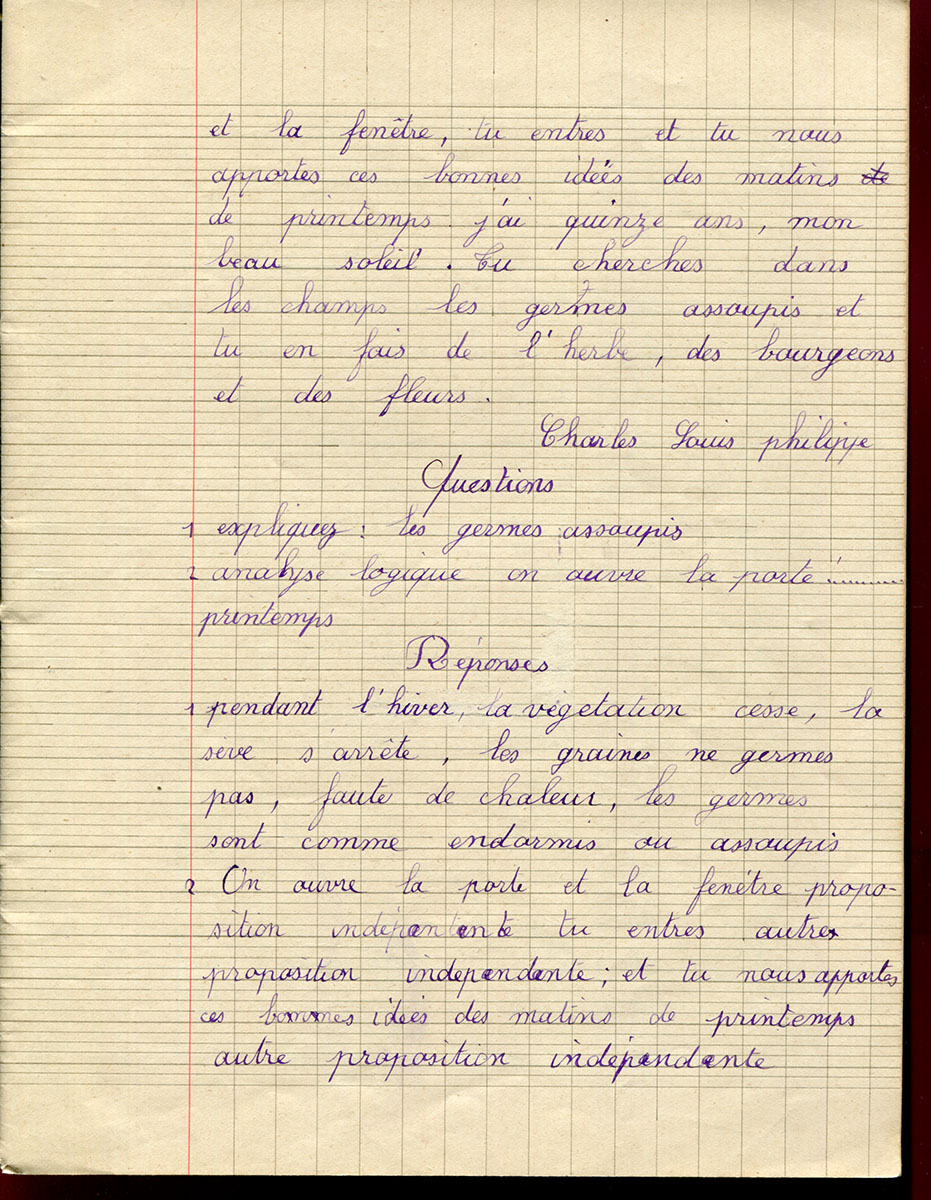 et la fenêtre, tu entres et tu nous
apportes ces bonnes idées des matins de
de printemps. j'ai quinze ans, mon
beau soleil. Tu cherches dans
les champs les germes assoupis et
tu en fais de l'herbe, des bourgeons
et des fleurs.
Charles Louis philippe
Questions
1 expliquez : les germes assoupis
2 analyse logique on ouvre la porte .........
printemps
Réponses
1 pendant l'hiver, la végetation cesse, la
sève s'arrête, les graines ne germes
pas, faute de chaleur, les germes
sont comme endormis ou assoupis
2 On ouvre la porte et la fenêtre propo-
sition indépentente tu entres autres
proposition indépendante ; et tu nous apportes
ces bonnes idées des matins de printemps
autre proposition indépendante